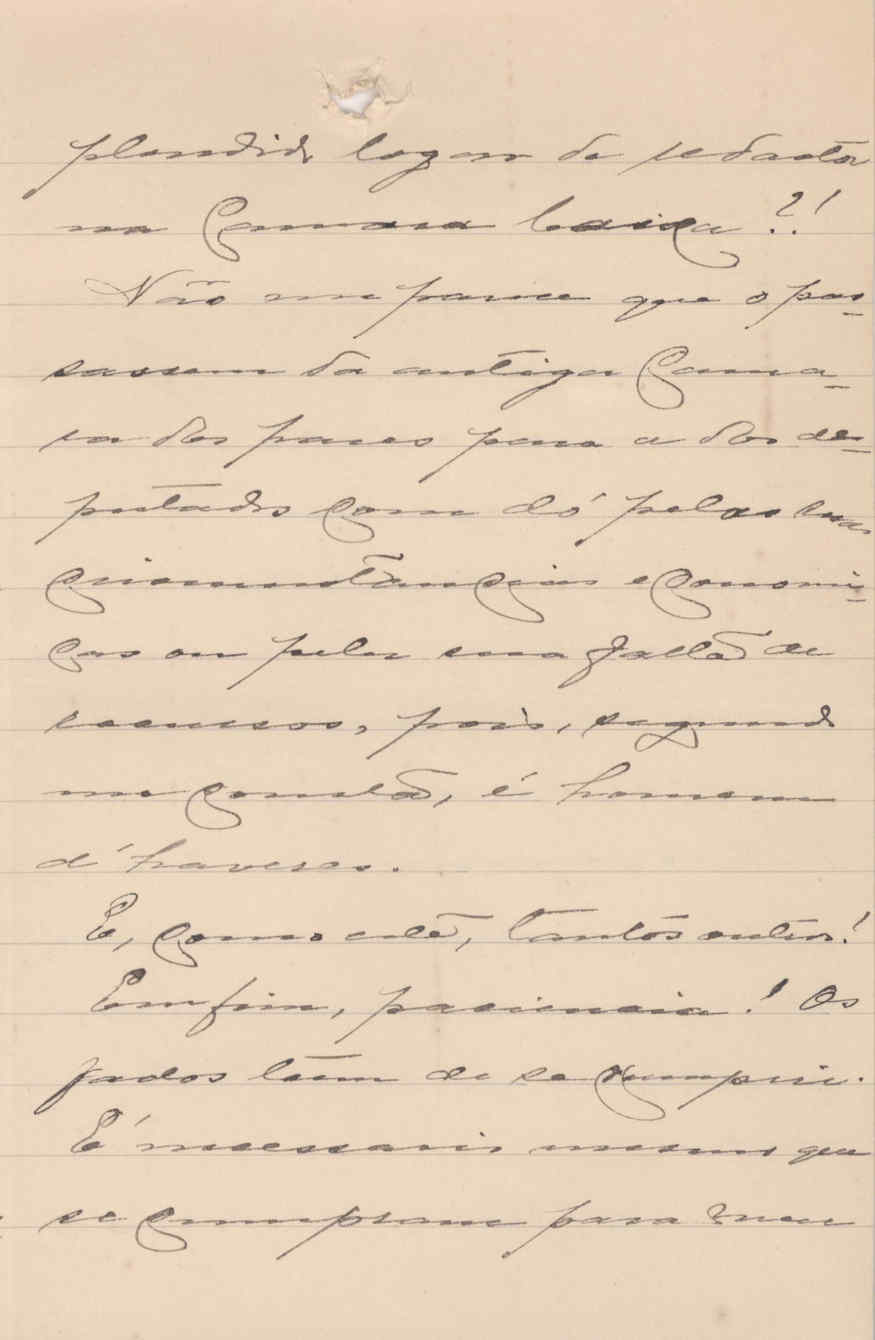 plendido logar de redactor
na Camara baixa?!
Não me parece que o pas-
sassem da antiga Cama-
ra dos pares para a dos de-
putados com dó pelas suas
circunstancias economi-
cas ou pela sua falta de
recursos, pois, segundo
me consta, é homem
d'haveres.
E, como este, tantos outros!
Em fim, paciencia! Os
fados teem de se cumprir.
É necessario mesmo que
se cumpram para meu